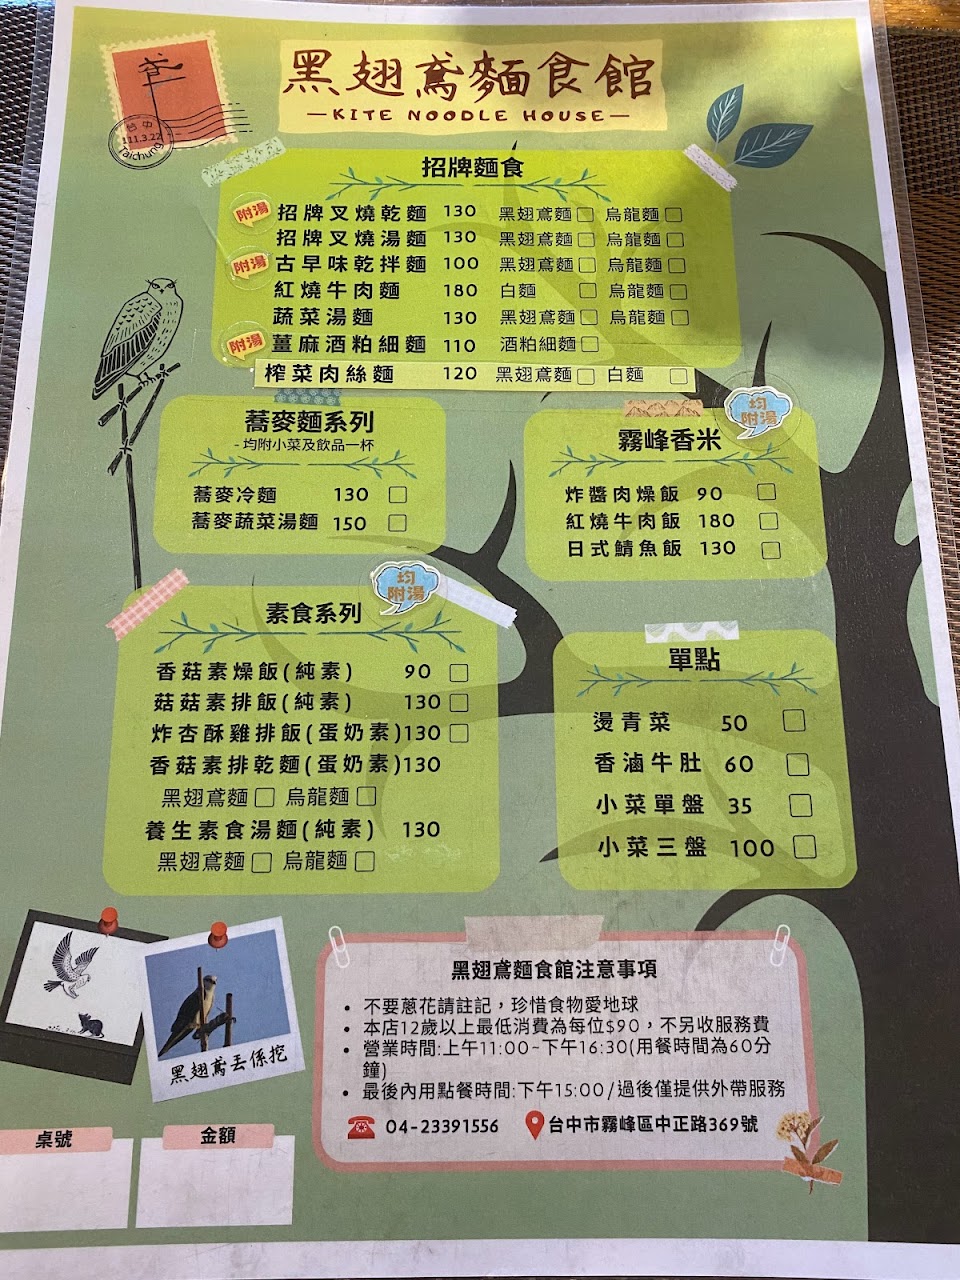 鳶
台中
111.3.22
Taichung
黑翅鳶麵食館
—KITE NOODLE HOUSE—
招牌麵食
附湯 招牌叉燒乾麵 130 黑翅鳶麵□ 烏龍麵□
招牌叉燒湯麵 130 黑翅鳶麵□ 烏龍麵□
附湯 古早味乾拌麵 100 黑翅鳶麵□ 烏龍麵□
紅燒牛肉麵 180 白麵 □ 烏龍麵□
蔬菜湯麵 130 黑翅鳶麵□ 烏龍麵□
附湯 薑麻酒粕細麵 110 酒粕細麵□
榨菜肉絲麵 120 黑翅鳶麵□ 白麵 □
蕎麥麵系列
- 均附小菜及飲品一杯
蕎麥冷麵 130 □
蕎麥蔬菜湯麵 150 □
均
附湯
霧峰香米
炸醬肉燥飯 90 □
紅燒牛肉飯 180 □
日式鯖魚飯 130 □
均
附湯
素食系列
香菇素燥飯(純素) 90 □
菇菇素排飯(純素) 130 □
炸杏酥雞排飯(蛋奶素)130 □
香菇素排乾麵(蛋奶素)130
黑翅鳶麵□ 烏龍麵□
養生素食湯麵(純素) 130
黑翅鳶麵□ 烏龍麵□
單點
燙青菜 50 □
香滷牛肚 60 □
小菜單盤 35 □
小菜三盤 100 □
黑翅鳶丟係挖
桌號
金額
黑翅鳶麵食館注意事項
• 不要蔥花請註記，珍惜食物愛地球
• 本店12歲以上最低消費為每位$90，不另收服務費
• 營業時間:上午11:00~下午16:30(用餐時間為60分
鐘)
• 最後內用點餐時間:下午15:00/過後僅提供外帶服務
04-23391556 台中市霧峰區中正路369號